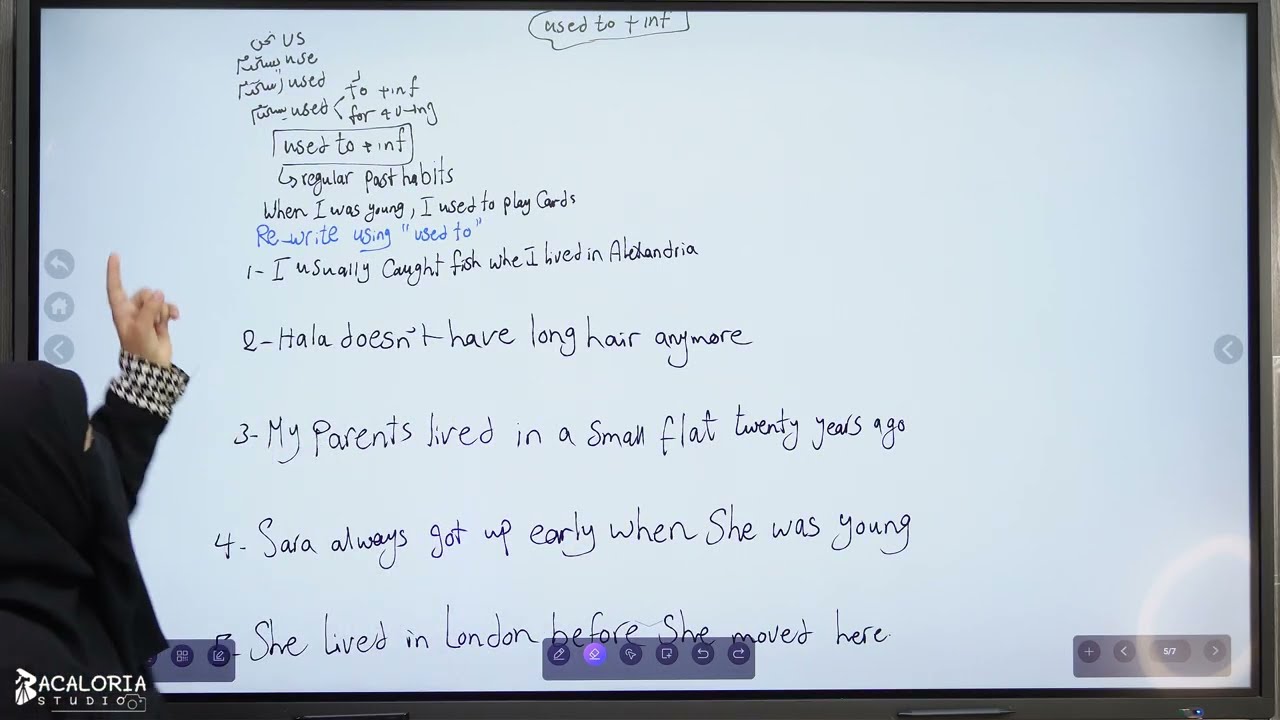 used to + inf
نحن US
يستخدم use
إستخدم used
يستخدم used to + inf
for + v-ing
used to + inf
↳ regular past habits
When I was young, I used to play Cards
Re-write using "used to"
1- I usually Caught fish whe I lived in Alexandria
2- Hala doesn't have long hair anymore
3- My Parents lived in a Small flat twenty years ago
4- Sara always got up early when She was young
5- She lived in London before She moved here.
5/7
BACALORIA
STUDIO